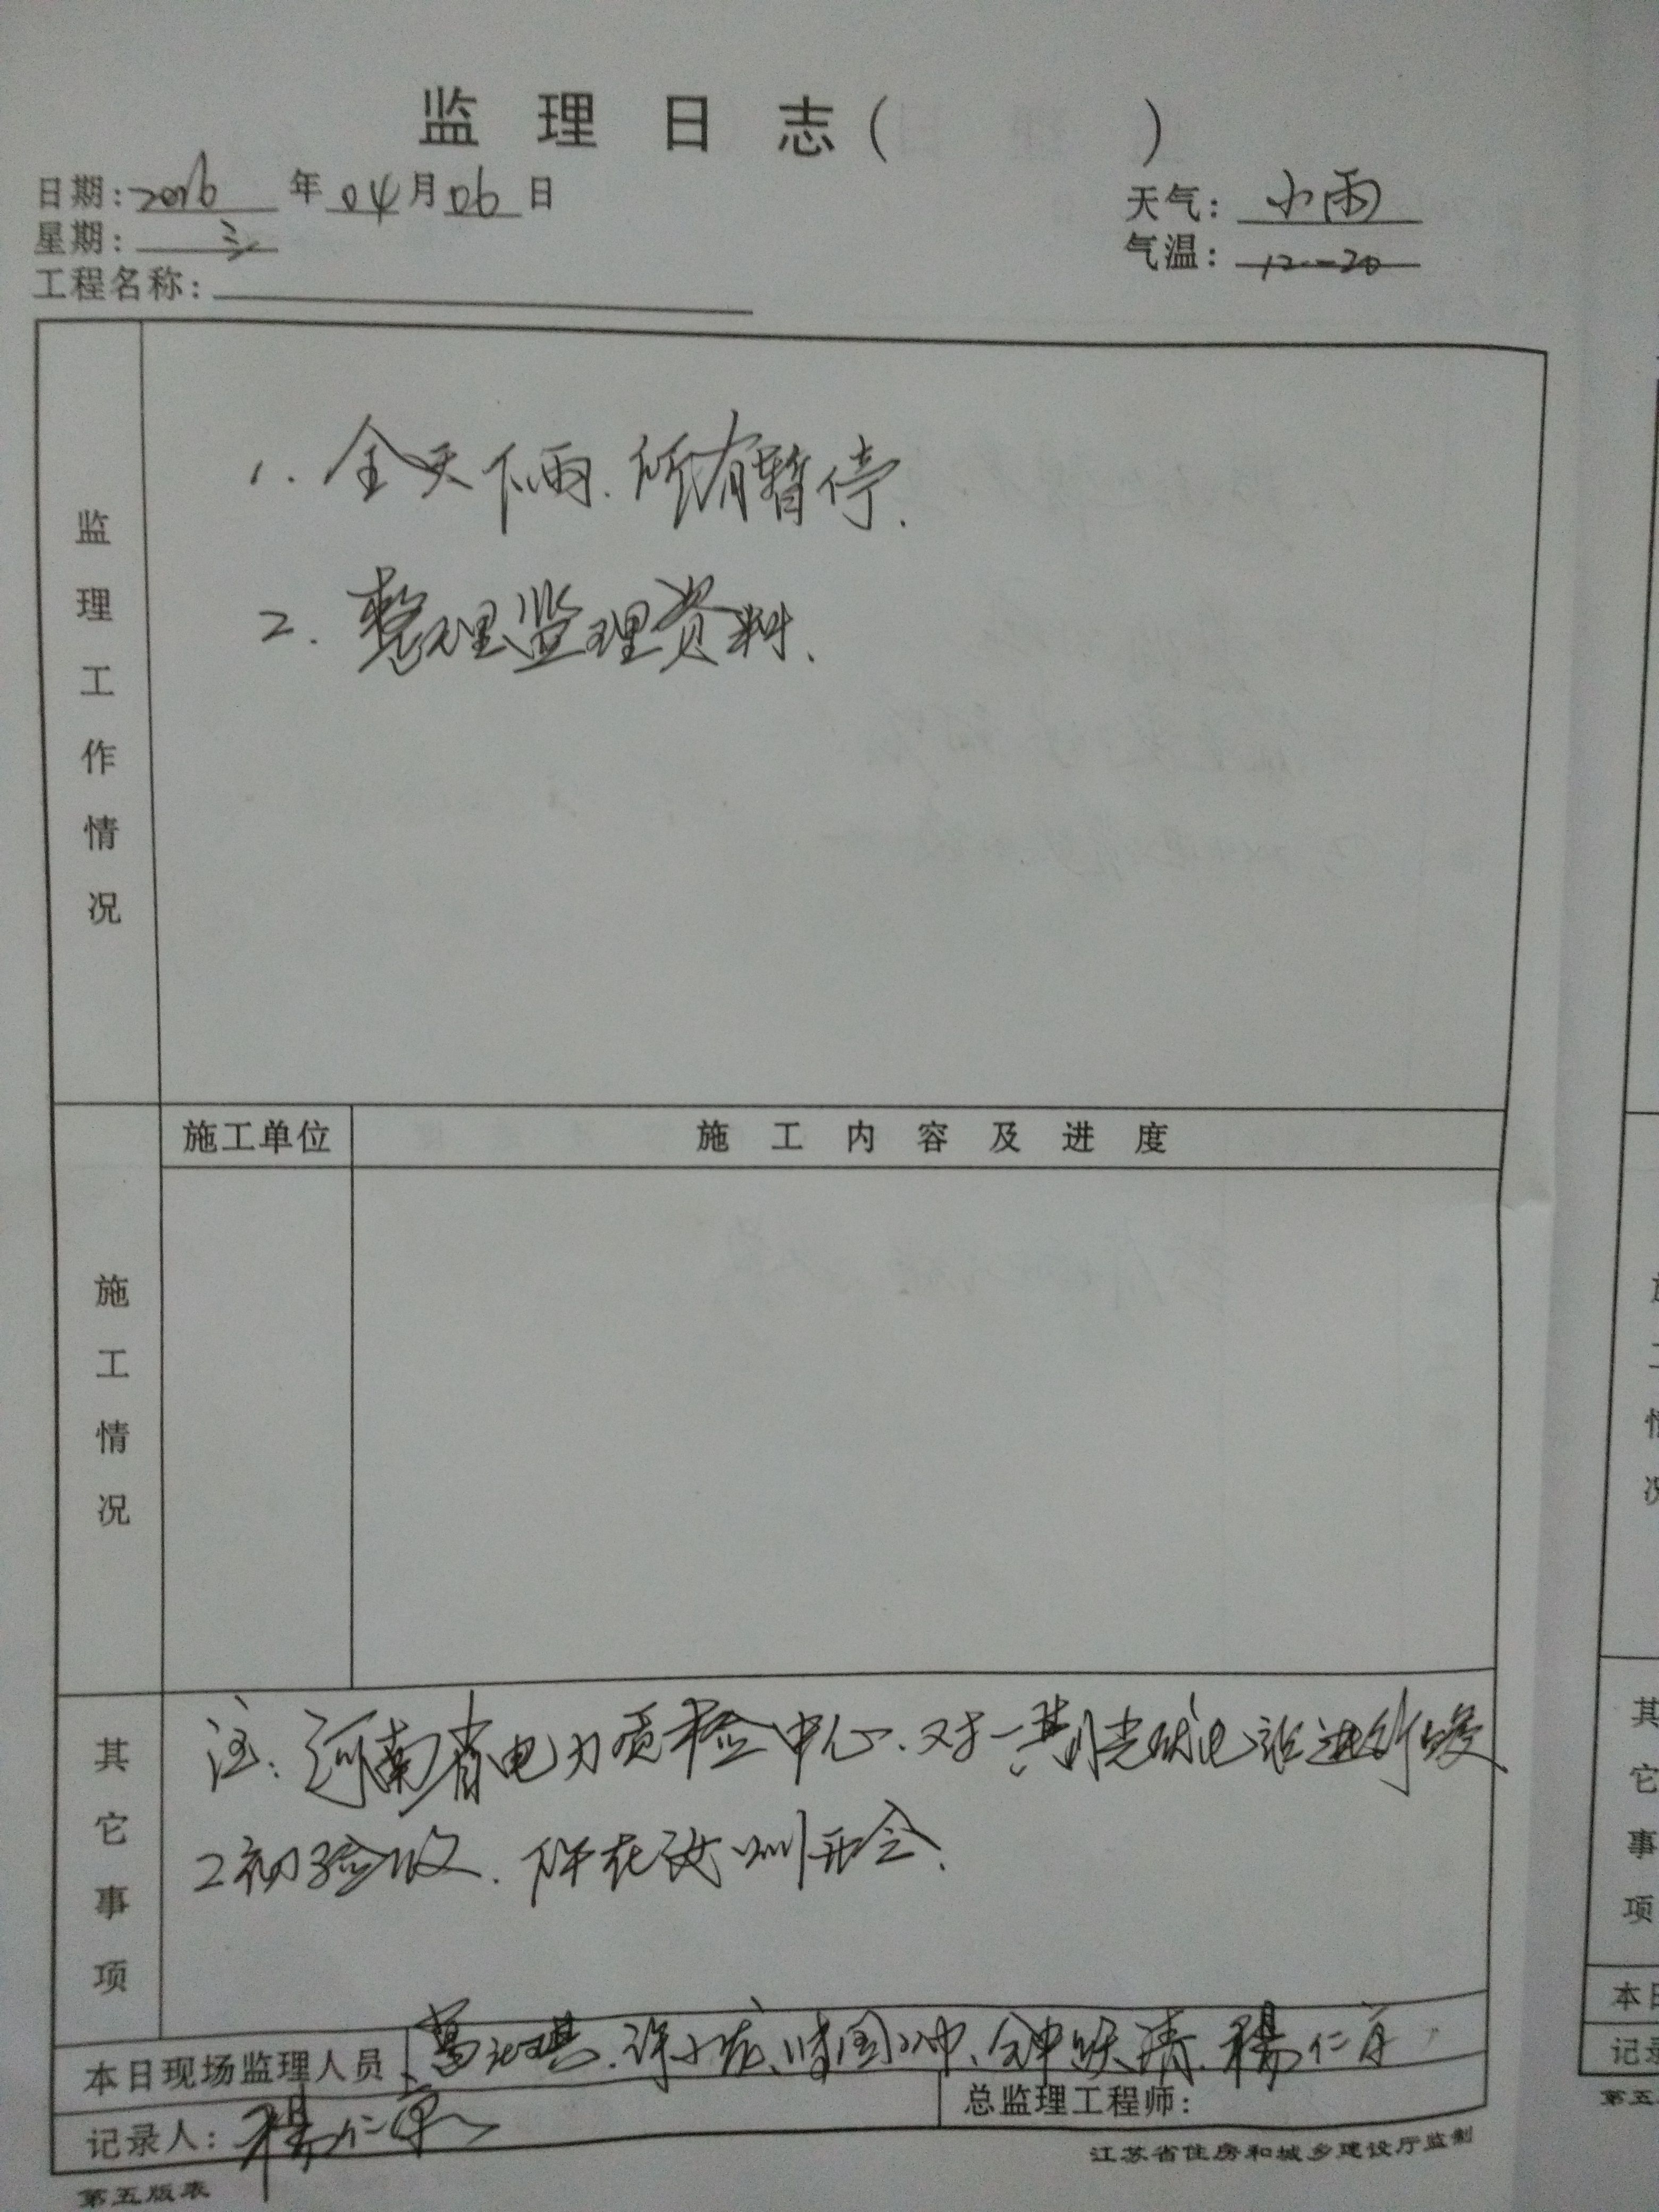 监理日志( )
日期: 2016 年 04 月 06 日 天气: 小雨
星期: 三 气温: 12-20
工程名称:
监理工作情况
1. 全天下雨. 所有暂停.
2. 整理监理资料.
施工单位 施工内容及进度
施工情况
其它事项
注: 河南省电力质检中心. 对一期光伏电站进行
初验收. 下午在 开会.
本日现场监理人员 杨仁
记录人: 杨仁 总监理工程师:
第五版表 江苏省住房和城乡建设厅监制
工
情
况
其
它
事
项
本日
记录
第五